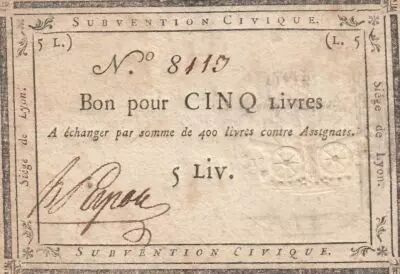 Subvention Civique.
5 L.)
(L. 5
N.º 8113
Bon pour CINQ Livres
A échanger par somme de 400 livres contre Assignats.
5 Liv.
Siége de Lyon.
Siége de Lyon.
Subvention Civique.